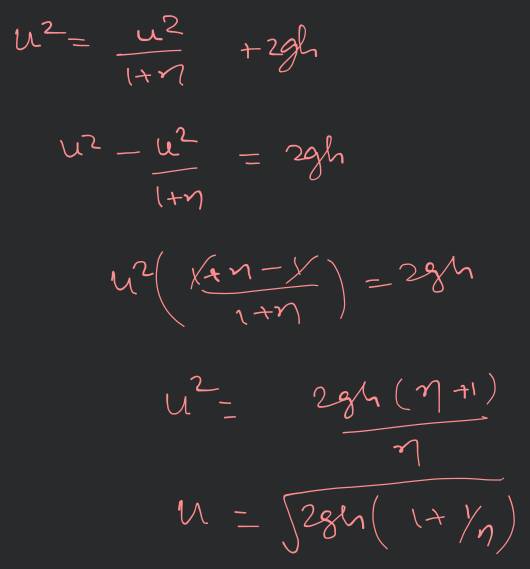 u² = u²/(1+η) + 2gh
u² − u²/(1+η) = 2gh
u² ((1+η−1)/(1+η)) = 2gh
u² = 2gh(η+1)/η
u = √(2gh(1+1/η))